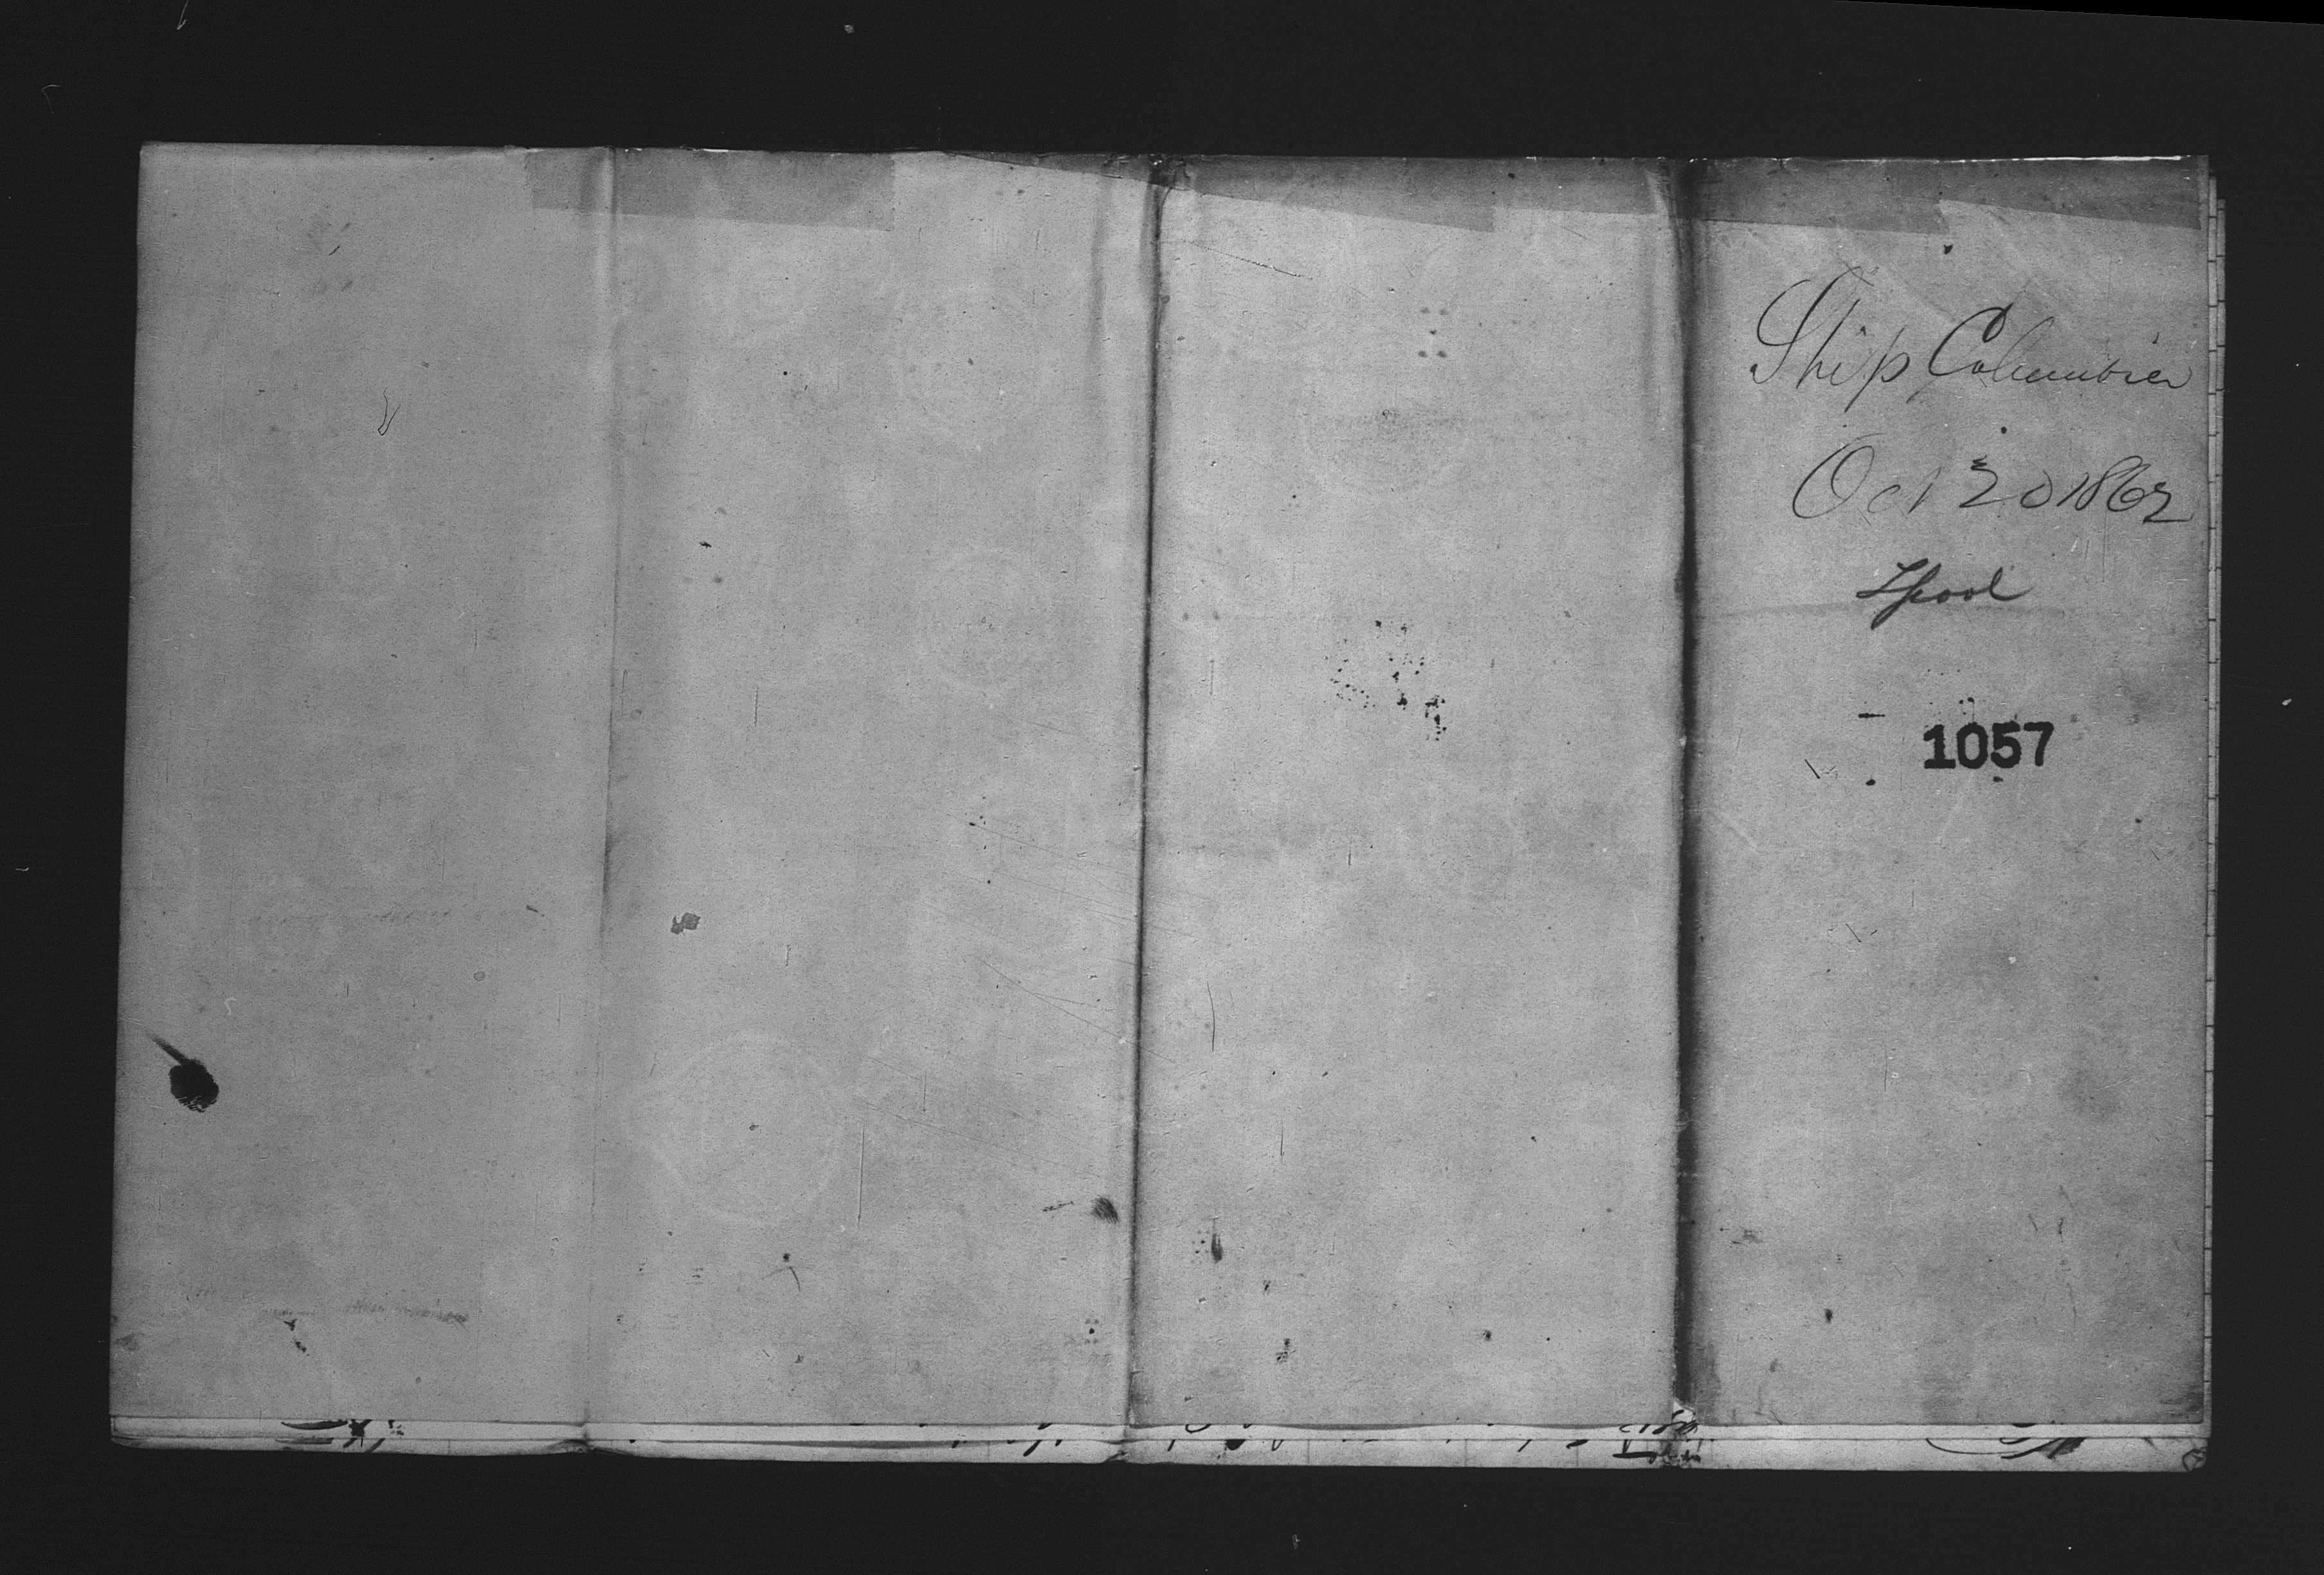 Ship Columbia
Oct 20 1862
Lpool
1057